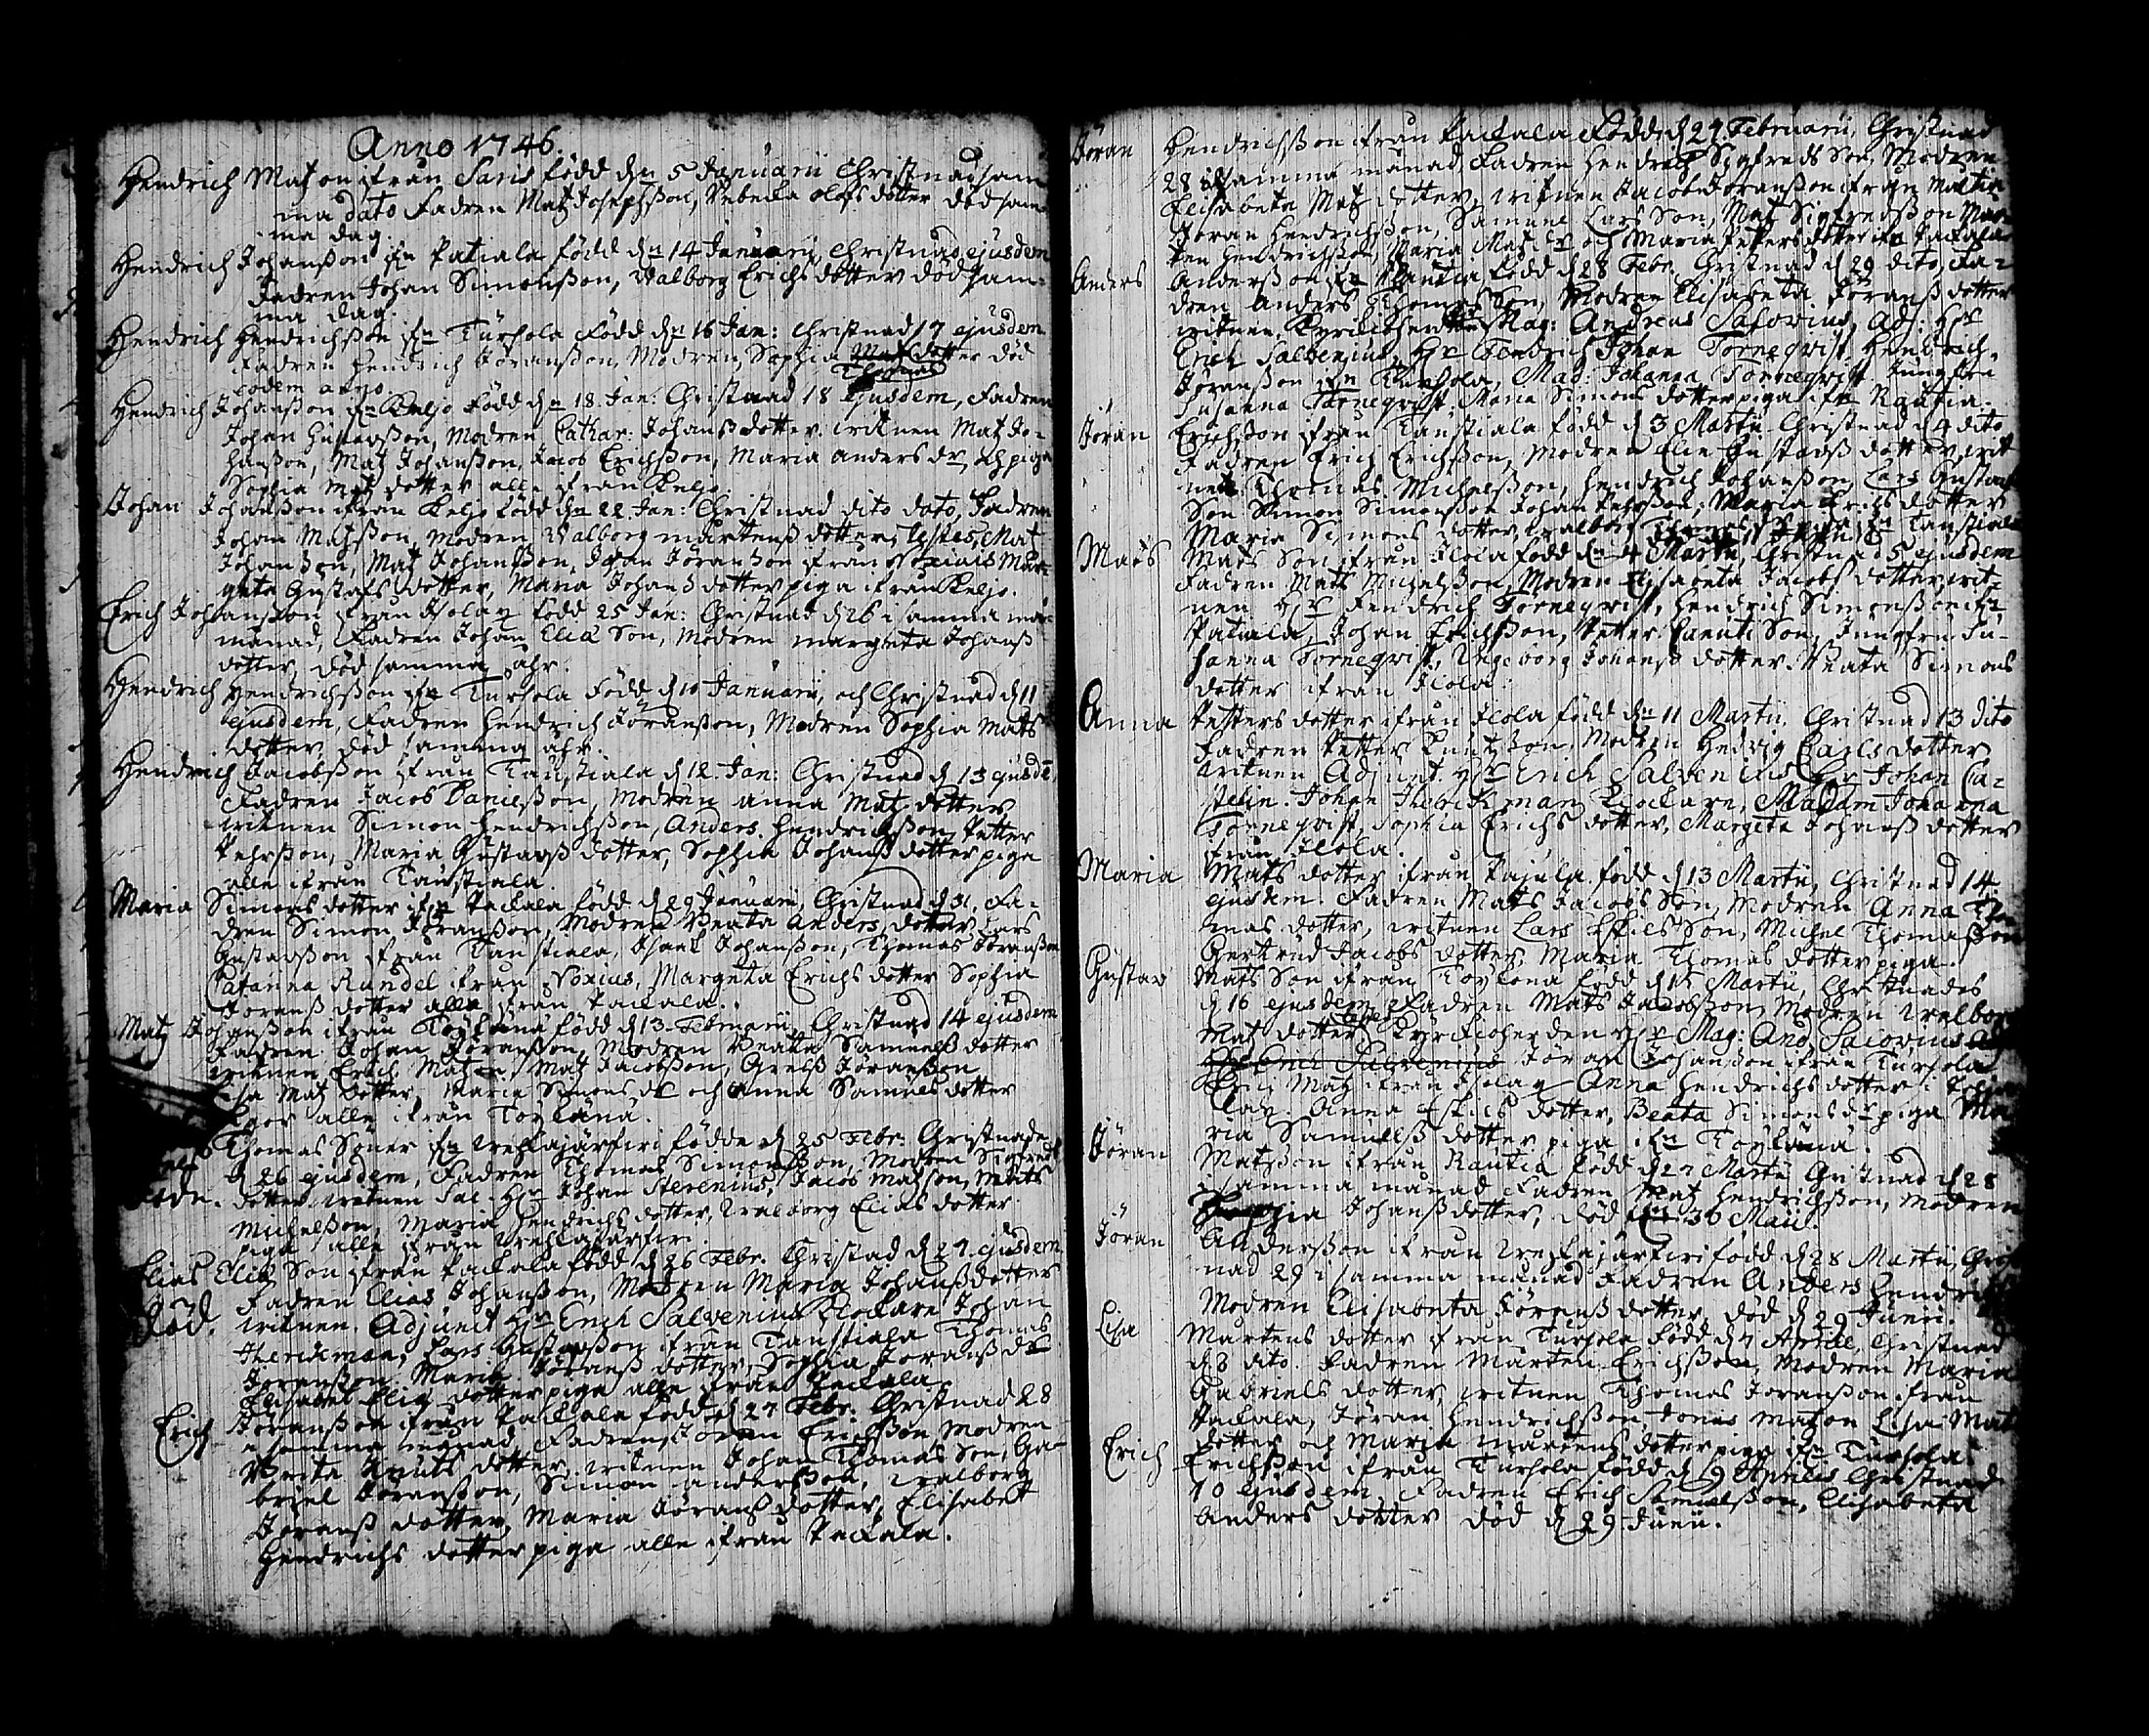 Anno 1746.
Hendrich Matzon ifrån Saris född dn 5 Januarii Christnad sam-
ma dato Fadren Matz Josephßon, Rebecka Olofs dotter död sam-
ma dag.
Hendrich Johanßon ifrn Patiala född dn 14 Januarii, Christnad ejusdem
Fadren Johan Simonßon, Walborg Erichs dotter död sam-
ma dag.
Hendrich Hendrichßon ifrn Turhola född dn 16 Jan: Christnad 17 ejusdem
Fadren Hendrich Joranßon, Modren, Sophia Matz dotter död
Thomas
eodem anno.
Hendrich Johanßon ifrn Keljo född dn 18 Jan: Christnad 18 ejusdem, Fadren
Johan Gustavßon, Modren Cathar: Johanß dotter. witnen Matz Jo-
hanßon, Matz Johanßon, Jacob Erichßon, Maria Anders dr, och piga
Sophia Matz dotter alle ifrån Keljo.
Johan Johanßon ifrån Keljo född dn 22 Jan: Christnad dito dato, Fadren
Johan Matzßon, Modren Walborg Mårtenß dotter, Testes, Matz
Johanßon, Matz Johanßon, Johan Joranßon ifrån Mar-
geta Gustafs dotter, Maria Johanß dotter piga ifrån Keljo.
Erich Johanßon ifrån född 25 Jan: Christnad d 26 i samma
månad, Fadren Johan Eliæ Son, Modren Margreta Johanß
dotter, död samma åhr.
Hendrich Hendrichßon ifrn Turhola född d 10 Januarii, och Christnad d 11
ejusdem, Fadren Hendrich Jöranßon, Modren Sophia Mats
dotter, död samma åhr.
Hendrich Jacobßon ifrån Taustiala d 12 Jan: Christnad d 13 ejusde
Fadren Jacob Danielßon, Modren Anna Matz dotter
witnen Simon Hendrichßon, Anders Hendrichßon Petter
Pehrßon, Maria Gustavß dotter, Sophia Johanß dotter piga
alle ifrån Taustiala
Maria Simons dotter ifrn Packala född d 29 Januarii, Christnad d 31, Fa-
dren Simon Joranßon, Modren Beata Anders dotter, Lars
Gustavßon ifrån Taustiala, Isaac Johanßon, Thomas Joranßon
Catarina Rundel ifrån Margreta Erichs dotter Sophia
Joranß dotter alla ifrån Packala.
Matz Johanßon ifrån född d 13 Februarii, Christnad 14 ejusdem
Fadren Johan Joranßon, Modren Beata Samuelß dotter
witnen Erich Matzon, Matz Jacobßon, Grelß Joranßon
Lisa Matz dotter, Maria Simons dr och Anna Samuels dotter
alle ifrån
Thomas Söner ifrn Wehkajärfwi födde d 25 Febr: Christnade
d 26 ejusdem, Fadren Thomas Simonßon, Modren
döde. dotter witnen Sal. Hr Johan Jacob Matzon, Mats
Michelßon, Maria Hendrichs dotter, Walborg Elias dotter
piga alle ifrån Wehkajärfwi.
Elias Eliæ Son ifrån Packala född d 26 Febr: Christnad d 27 ejusdem
Fadren Elias Johanßon, Modren Maria Johanß dotter
död. witnen. Adjunct Hr Erich Salvenius Klockare Johan
Lars Gustavßon ifrån Taustiala Thomas
Joranßon. Maria Joranß dotter, Sophia Joranß dr
Elisabet Eliæ dotter piga alle ifrån Packala
Erich Joranßon ifrån Packala född d 27 Febr: Christnad 28
i samma månad, Fadren, Joran Erichßon Modren
Brita Knuts dotter witnen Johan Thomas Son, Ga-
briel Joranßon, Simon Anderßon, Walborg
Joranß dotter, Maria Joranß dotter, Elisabet
Hendrichs dotter piga alle ifrån Packala.
Jöran Hendrichßon ifrån Packala född d 27 Februarii, Christnad
28 i samma månad, Fadren Hendrich Sigfreds Son, Modren
Elisabeta Matz dotter, witnen Jacob Joranßon ifrån
Joran Hendrichßon, Samuel Lars Son, Matz Sigfredßon
Hendrichßon, Maria Matz dr och Maria Petters dotter ifrn Packala
Anders Anderßon ifrn Rautia född d 28 Febr. Christnad d 29 dito, Fa-
dren Anders Thomas Son, Modren Elisabeta Joranß dotter
witnen Kyrkioherden Mag: Andreas Salovius, Adj: Hr
Erich Salvenius, Hr Fendrich Johan Torneqvist Hendrich
Joranßon ifrn Turhola, Mad: Johanna Torneqvist Jungfru
Susanna Torneqvist, Maria Simons dotter piga ifrn Rautia.
Jöran Erichßon ifrån Taustiala född d 3 Martii Christnad d 4 dito
Fadren Erich Erichßon, Modren Elin Gustavß dotter, wit-
nen Thomas Michelßon, Hendrich Johanßon, Lars Gustav
Son Simon Simonßon Johan Pehrßon, Maria Erichs dotter
Maria Simons dotter, Walborg ifrn Taustiala
Mats Mats Son ifrån Ilola född dn 4 Martii, Christnad 5 ejusdem
Fadren Mats Michelßon Modren Elisabeta Jacobs dotter, wit-
nen Hr Fendrich Torneqvist, Hendrich Simonßon ifrn
Patiala, Johan Erichßon, Petter Knuti Son, Jungfru Su-
sanna Torneqvist, Ingeborg Johanß dotter, Beata Simons
dotter ifrån Ilola.
Anna Petters dotter ifrån Ilola född dn 11 Martii, Christnad 13 dito
Fadren Petter Knutßon, Modren Hedvig Carls dotter
witnen Adjunt. Hr Erich Salvenius, Hr Johan Ca-
stelin. Johan Klockare, Madam Johanna
Torneqvist, Sophia Erichs dotter, Margeta Johanß dotter
ifrån Ilola.
Maria Mats dotter ifrån Pajula född d 13 Martii, Christnad 14
ejusdem. Fadren Mats Jacobs Son, Modren Anna Tho-
mas dotter, witnen Lars Eskils Son, Michel Thomaßon
Gertrud Jacobs dotter, Maria Thomas dotter piga.
Gustav Mats Son ifrån född d 15 Martii, Christnades
d 16 ejusdem, Fadren Mats Jacobßon, Modren Walborg
Matz dotter, Kyrkioherden Hr Mag: And. Salovius
Erici Salvenius Jöran Johanßon ifrån Turhola
Erici Matz ifrån Anna Hendrichs dotter
Anna Eskils dotter, Beata Simons dr piga Ma-
ria Samuelß dotter piga ifrn
Jöran Matsßon ifrån Rautia född d 27 Martii Christnad d 28
i samma månad Fadren Matz Hendrichßon, Modren
Sophia Johanß dotter, död d 30 Maii.
Jöran Anderßon ifrån Wehkajärfwi född d 28 Martii, Christ-
nad 29 i samma månad Fadren Anders
Modren Elisabeta Jöranß dotter, död d 29 Junii.
Lisa Mårtens dotter ifrån Turhola född d 7 Aprill, Christnad
d 8 dito. Fadren Mårten Erichßon, Modren Maria
Gabriels dotter, witnen Thomas Joranßon ifrån
Packala, Jöran Hendrichßon, Jonas Matzon Lisa Mats
dotter och Maria Mårtens dotter piga ifrn Turhola.
Erich Erichßon ifrån Turhola född d 9 Aprilis Christnad
10 ejusdem Fadren Erich Samuelßon, Elisabeta
Anders dotter död d 29 Junii.